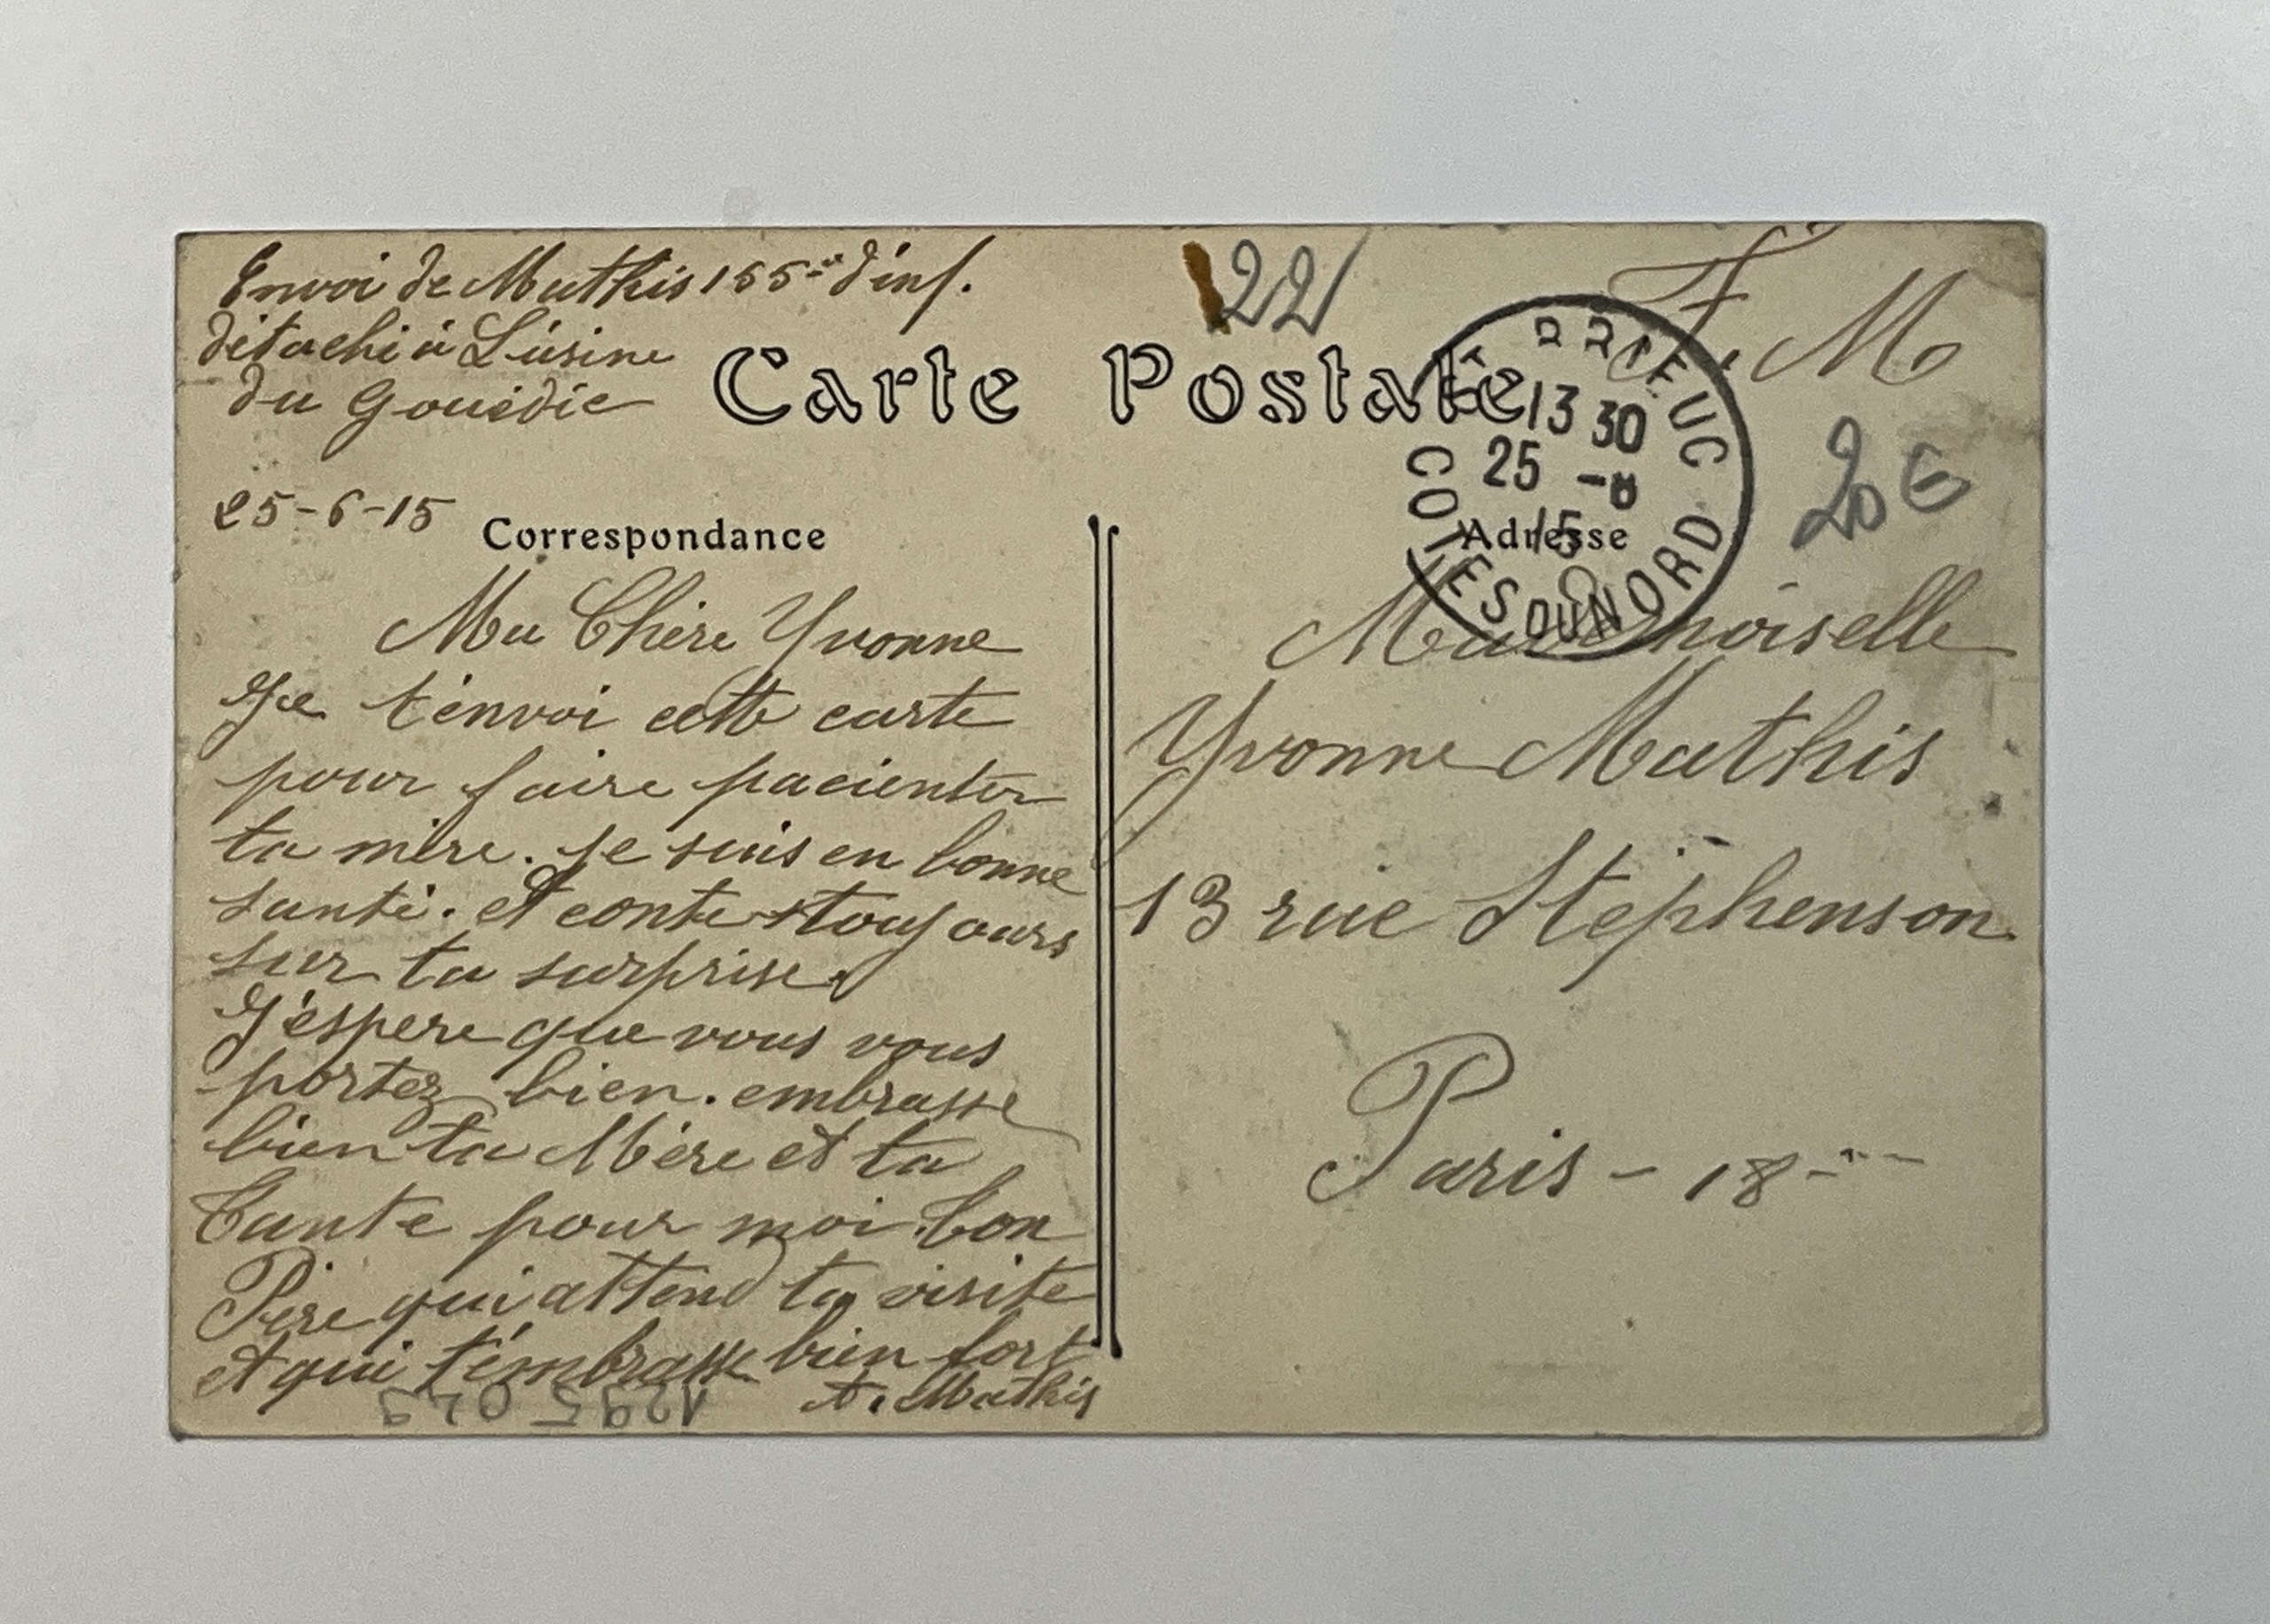 Envoi de Mathis 155me d'inf.
détaché à L'úsine
du Gouédic
22
F. M
Carte Postale
ST BRIEUC
13 30
25 -6
15
COTES DU NORD
20€
25-6-15
Correspondance
Ma Chère Yvonne
Je t'envoi cette carte
pour faire pacienter
ta mère. je suis en bonne
santé. et conte toujours
sur ta surprise.
J'éspere que vous vous
portez bien. embrasse
bien ta Mère et ta
Tante pour moi. ton
Père qui attend ta visite
et qui t'émbrasse bien fort
A. Mathis
Adresse
Mademoiselle
Yvonne Mathis
13 rue Stéphenson
Paris - 18